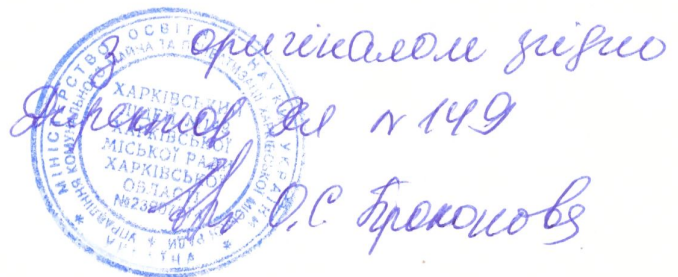 З оригіналом згідно
Директор ХЛ №149
О.С. Прокопова
МІНІСТЕРСТВО ОСВІТИ І НАУКИ УКРАЇНИ
ХАРКІВСЬКИЙ
ЛІЦЕЙ
ХАРКІВСЬКОЇ
МІСЬКОЇ РАДИ
ХАРКІВСЬКОЇ
ОБЛАСТІ